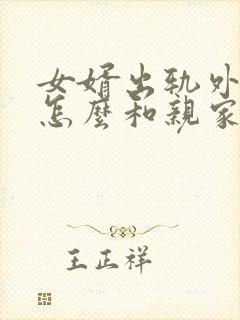 女婿出轨外
怎麼和親家
王正祥